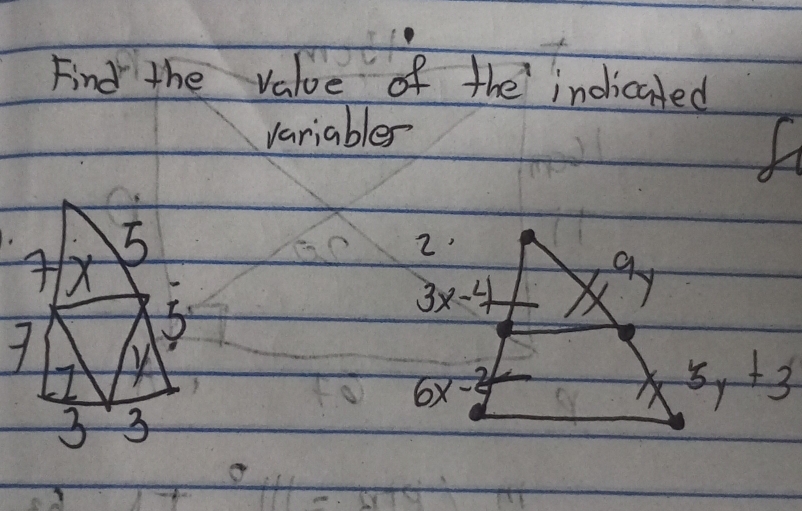 Find the value of the indicated
variables
7 x 5
7 z y 5
3 3
2.
3x-4 9y
6x-2 5y +3